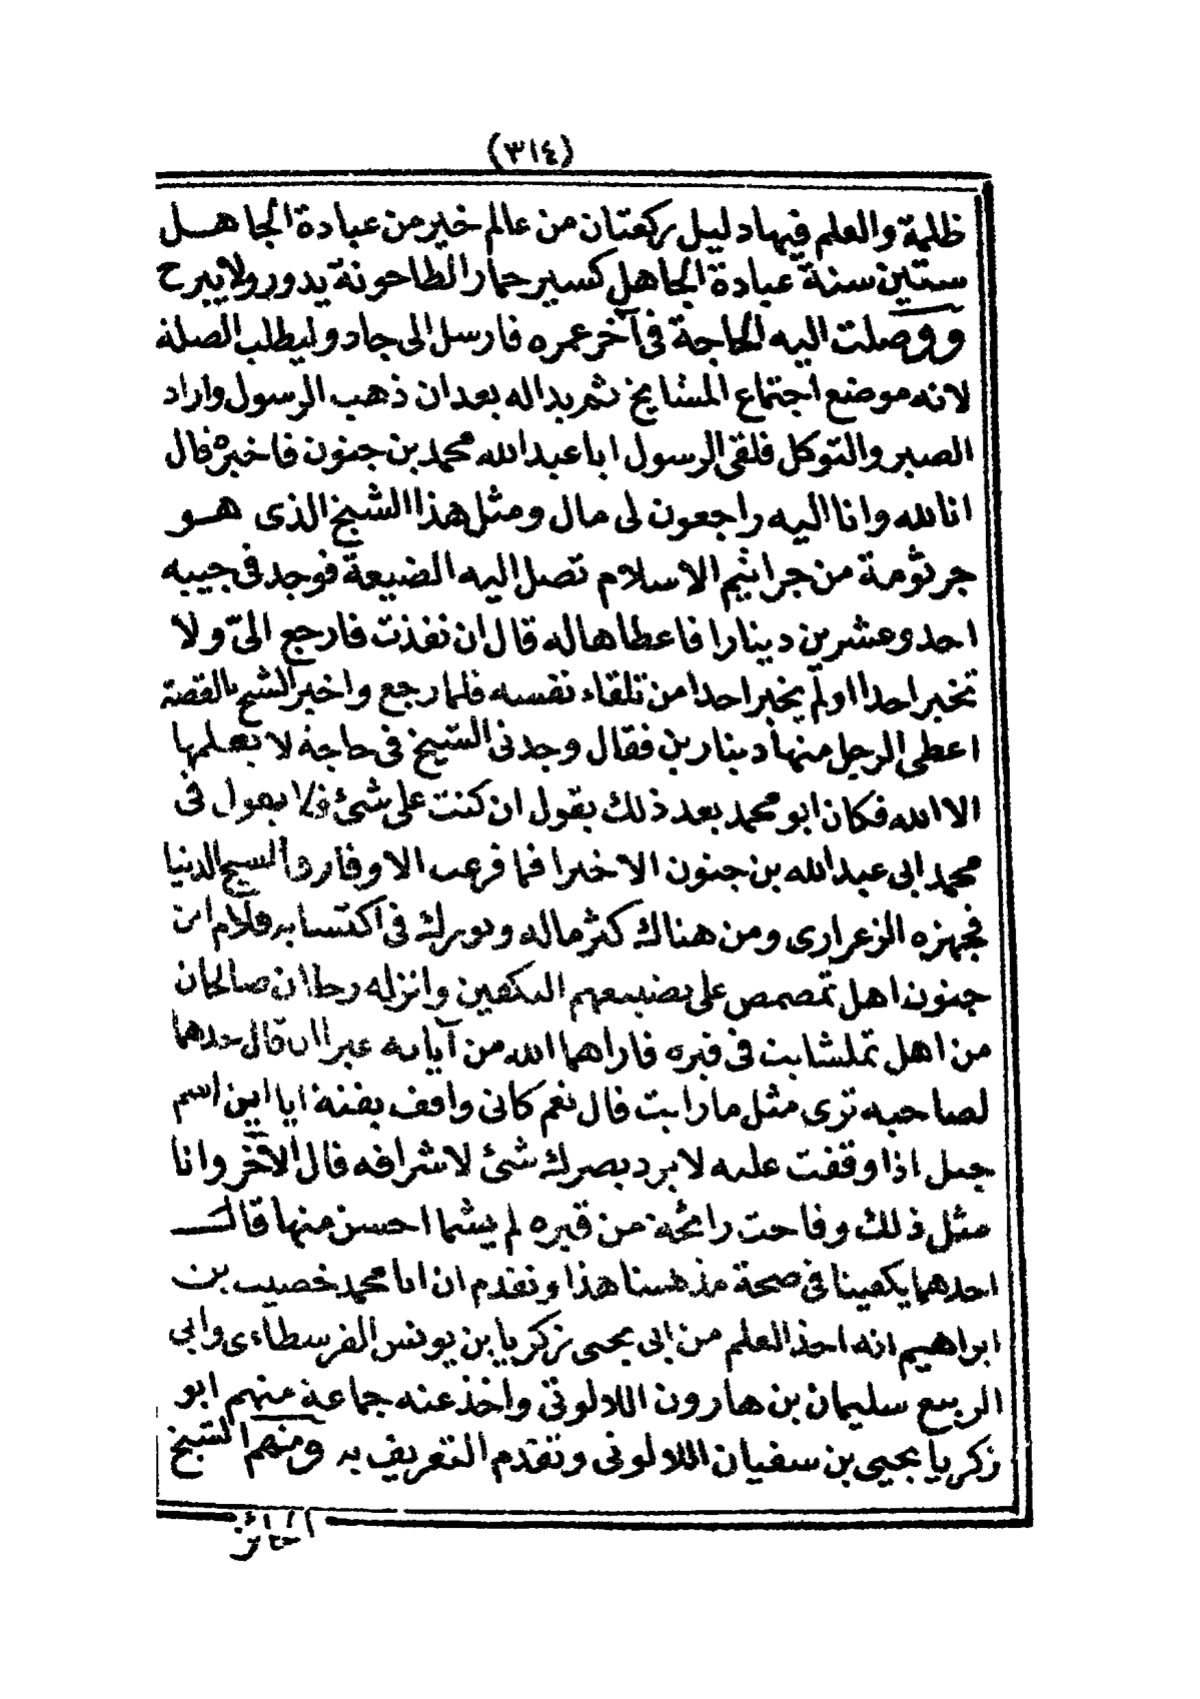 (٣١٤)
ظلمة والعلم فيها دليل ركعتان من عالم خير من عبادة الجاهل
ستين سنة عبادة الجاهل كسير حمار الطاحونة يدور ولا يبرح
ووصلت اليه الحاجة فى آخر عمره فارسل الى جادو ليطلب الصلة
لانه موضع اجتماع المشايخ ثم بدا له بعد ان ذهب الرسول واراد
الصبر والتوكل فلقى الرسول ابا عبد الله محمد بن جنون فاخبره فقال
انا لله وانا اليه راجعون لى مال ومثل هذا الشيخ الذى هو
جرثومة من جراثيم الاسلام تصل اليه الضيعة فوجد فى جيبه
احد وعشرين دينارا فاعطاها له قال ان نفذت فارجع الىّ ولا
تخبر احدا اولم يخبر احدا من تلقاء نفسه فلما رجع واخبر الشيخ بالقصة
اعطى الرجل منها دينارين فقال وجدنى الشيخ فى حاجة لا يعلمها
الا الله فكان ابو محمد بعد ذلك يقول ان كنت على شئ فلا يعول فى
محمد ابى عبد الله بن جنون الا خيرا فما فرغت الا وفارق الشيخ الدنيا
فجهزه الزعرارى ومن هناك كثر ماله وبورك فى اكتسابه فلام ابن
جنون اهل تمصمص على تضييعهم التكفين وانزله رجلان صالحان
من اهل تملشايت فى قبره فاراهما الله من آياته عبرا ان قال احدهما
لصاحبه ترى مثل ما رايت قال نعم كانى واقف بفنة ايا اين اسم
جبل اذا وقفت عليه لا يرد بصرك شئ لاشرافه قال الآخر وانا
مثل ذلك وفاحت رائحة من قبره لم يشما احسن منها قال
احدهما يكفينا فى صحة مذهبنا هذا وتقدم ان ابا محمد خصيب بن
ابراهيم انه اخذ العلم من ابى يحيى زكريا بن يونس الفرسطاءى وابى
الربيع سليمان بن هارون اللالوتى واخذ عنه جماعة منهم ابو
زكريا يحيى بن سفيان اللالوتى وتقدم التعريف به ومنهم الشيخ